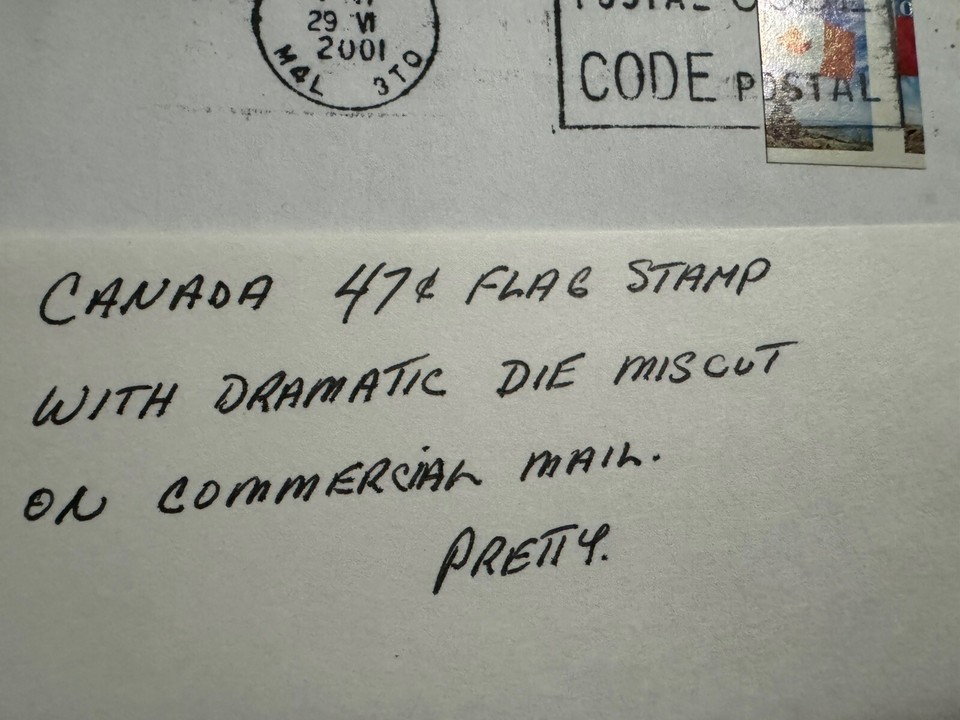 29 VI
2001
M4L 3T0
CODE POSTAL
CANADA 47¢ FLAG STAMP
WITH DRAMATIC DIE MISCUT
ON COMMERCIAL MAIL.
PRETTY.